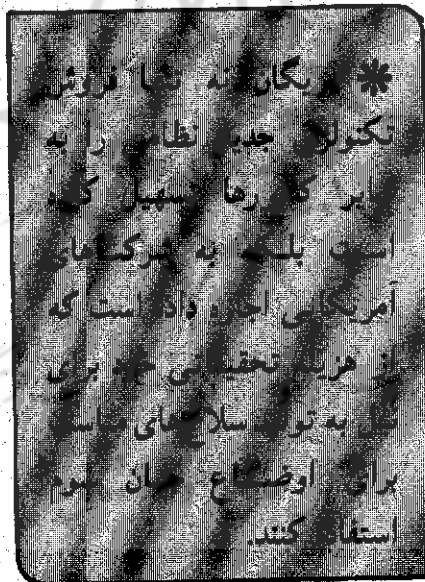 * ریگان نه تنها فروش
تکنولژی جدید نظامی را به
سایر کشورها تسهیل کرده
است بلکه به شرکتهای
آمریکایی اجازه داده است که
از هزینه تحقیقاتی خود برای
نیل به تولید سلاح‌های مناسب
برای اوضاع جهان سوم
استفاده کنند.